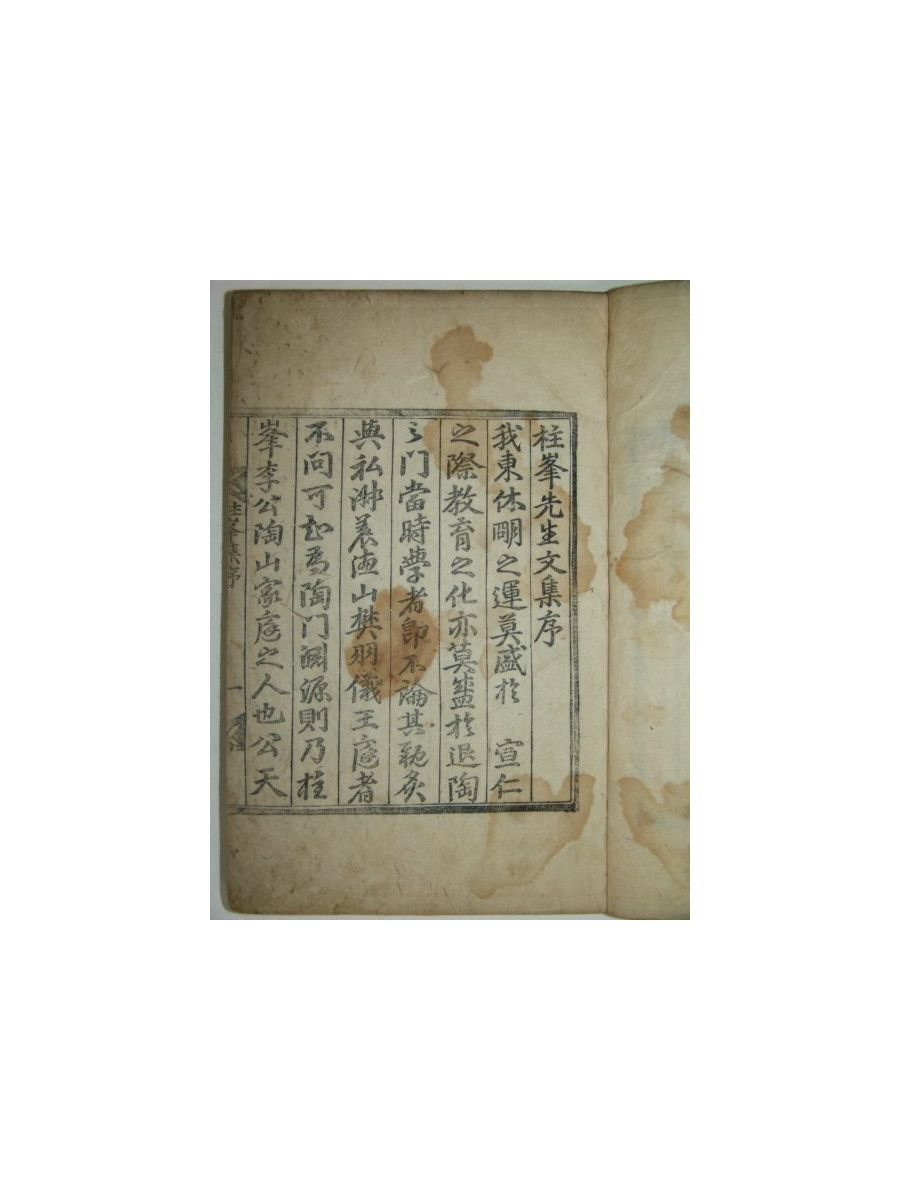 柱峯先生文集序
我東休明之運莫盛於 宣仁
之際教育之化亦莫盛於退陶
之門當時學者即不論其親炙
與私淑羔鴈山樊羽儀王庭者
不問可知爲陶門淵源則乃柱
峯李公陶山家庭之人也公天
柱峯集序
一